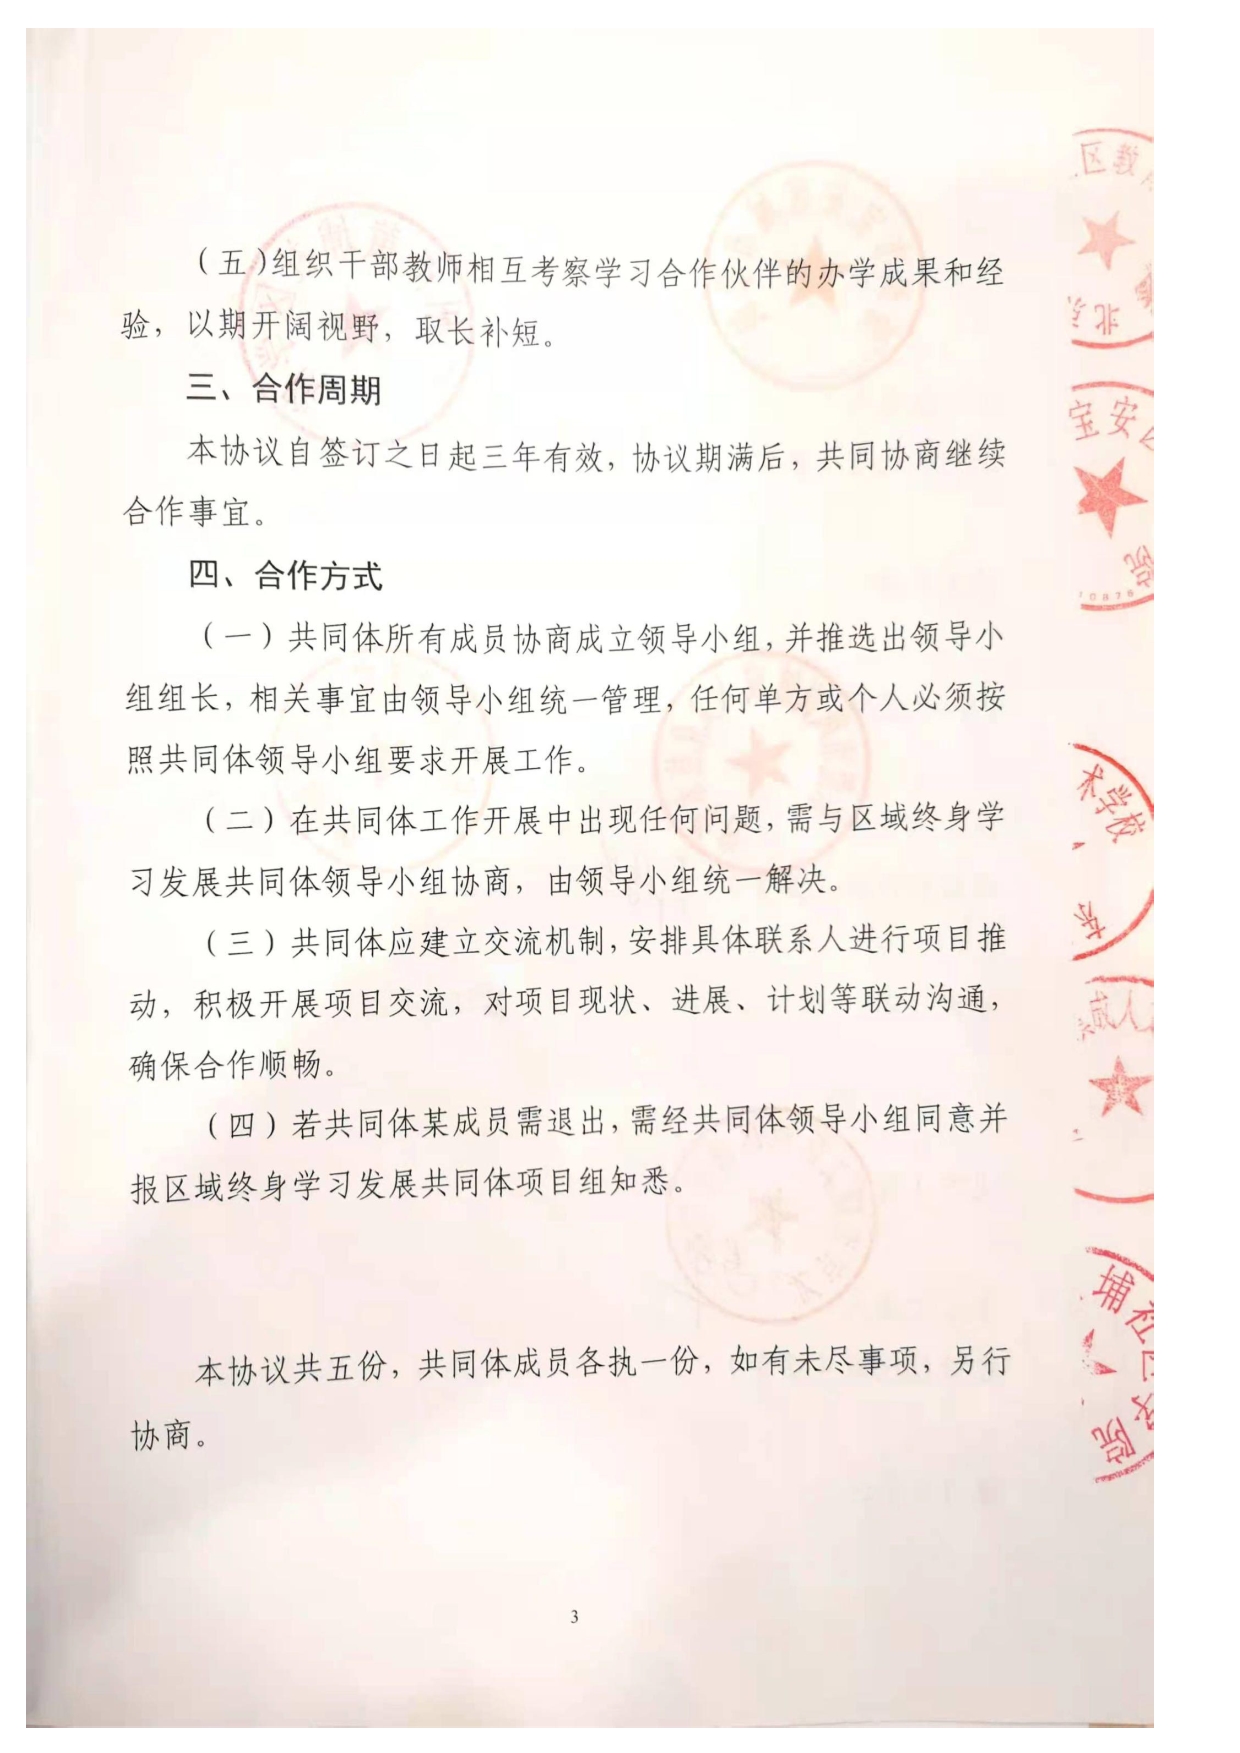 （五）组织干部教师相互考察学习合作伙伴的办学成果和经
验，以期开阔视野，取长补短。
三、合作周期
本协议自签订之日起三年有效，协议期满后，共同协商继续
合作事宜。
四、合作方式
（一）共同体所有成员协商成立领导小组，并推选出领导小
组组长，相关事宜由领导小组统一管理，任何单方或个人必须按
照共同体领导小组要求开展工作。
（二）在共同体工作开展中出现任何问题，需与区域终身学
习发展共同体领导小组协商，由领导小组统一解决。
（三）共同体应建立交流机制，安排具体联系人进行项目推
动，积极开展项目交流，对项目现状、进展、计划等联动沟通，
确保合作顺畅。
（四）若共同体某成员需退出，需经共同体领导小组同意并
报区域终身学习发展共同体项目组知悉。
本协议共五份，共同体成员各执一份，如有未尽事项，另行
协商。
3
区教
北京
宝安
院
10876
术学校
人成
埔社区
院